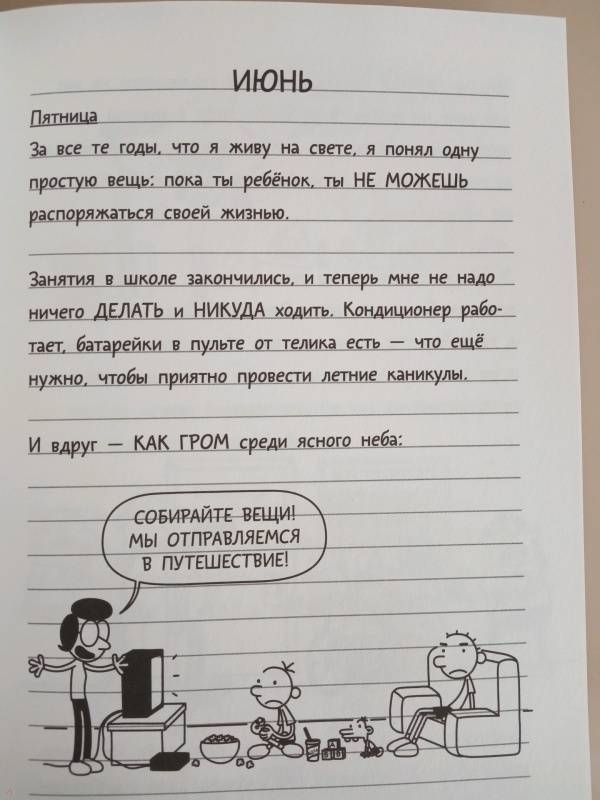 ИЮНЬ
Пятница
За все те годы, что я живу на свете, я понял одну
простую вещь: пока ты ребёнок, ты НЕ МОЖЕШЬ
распоряжаться своей жизнью.
Занятия в школе закончились, и теперь мне не надо
ничего ДЕЛАТЬ и НИКУДА ходить. Кондиционер рабо-
тает, батарейки в пульте от телика есть — что ещё
нужно, чтобы приятно провести летние каникулы.
И вдруг — КАК ГРОМ среди ясного неба:
СОБИРАЙТЕ ВЕЩИ!
МЫ ОТПРАВЛЯЕМСЯ
В ПУТЕШЕСТВИЕ!